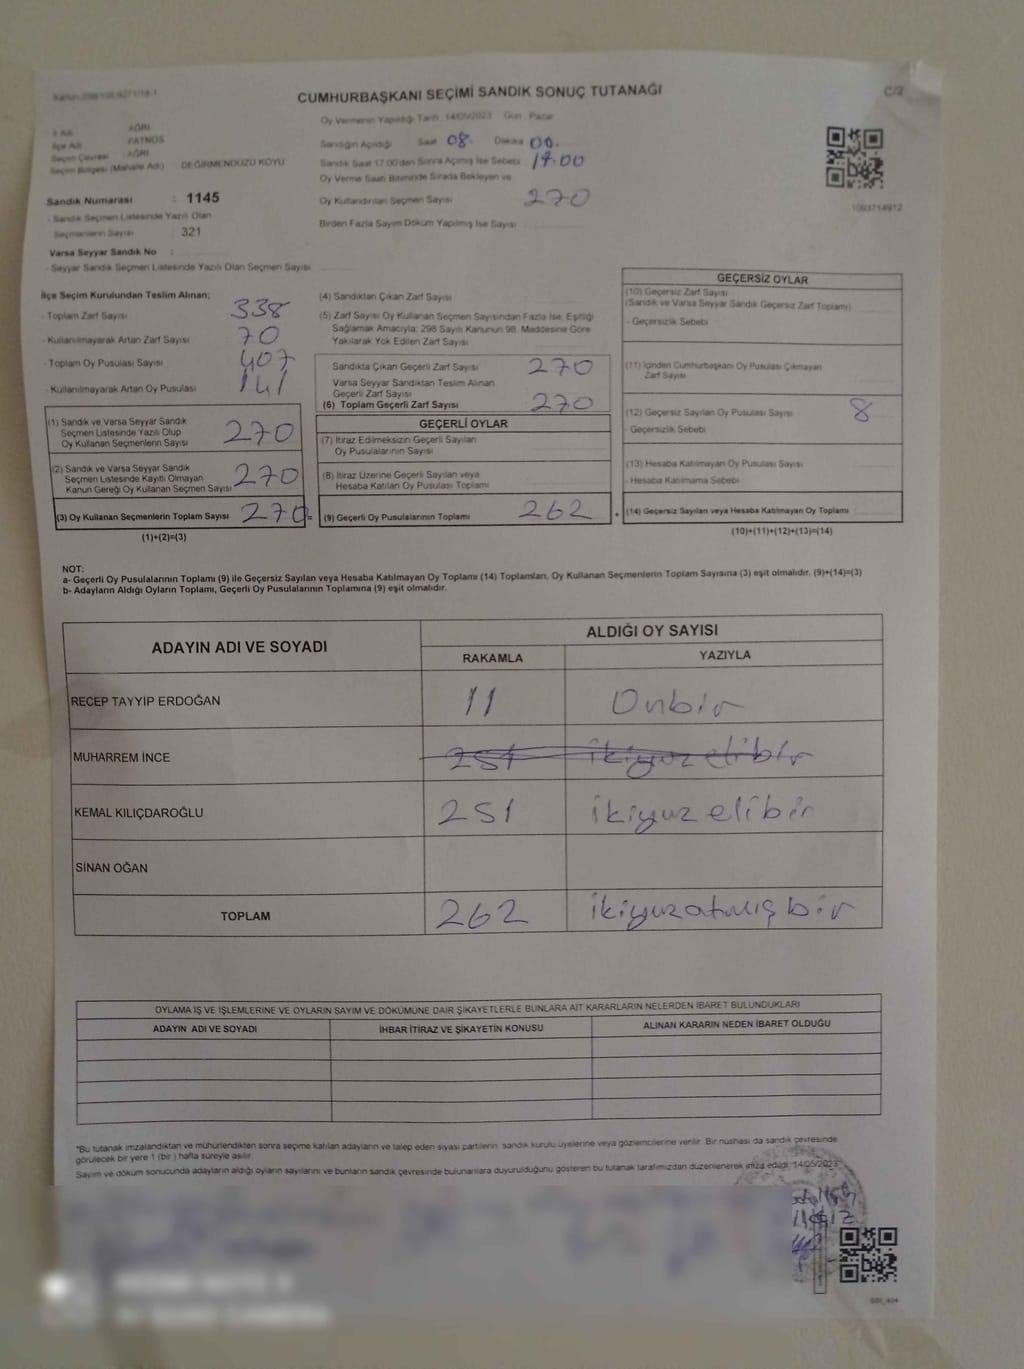 CUMHURBAŞKANI SEÇİMİ SANDIK SONUÇ TUTANAĞI
C/2
Oy Vermenin Yapıldığı Tarih 14/05/2023 Gün Pazar
İl Adı AĞRI
İlçe Adı PATNOS
Seçim Çevresi AĞRI
Seçim Bölgesi (Mahalle Adı) DEĞİRMENDÜZÜ KÖYÜ
Sandığın Açıldığı Saat 08. Dakika 00.
Sandık Saat 17.00'den Sonra Açılmış İse Sebebi 17.00
Oy Verme Saati Bitiminde Sırada Bekleyen ve
Oy Kullandırılan Seçmen Sayısı 270
Birden Fazla Sayım Döküm Yapılmış İse Sayısı
1003714912
Sandık Numarası : 1145
- Sandık Seçmen Listesinde Yazılı Olan
Seçmenlerin Sayısı : 321
Varsa Seyyar Sandık No :
- Seyyar Sandık Seçmen Listesinde Yazılı Olan Seçmen Sayısı
İlçe Seçim Kurulundan Teslim Alınan;
- Toplam Zarf Sayısı 338
- Kullanılmayarak Artan Zarf Sayısı 70
- Toplam Oy Pusulası Sayısı 407
- Kullanılmayarak Artan Oy Pusulası 141
(1) Sandık ve Varsa Seyyar Sandık
Seçmen Listesinde Yazılı Olup
Oy Kullanan Seçmenlerin Sayısı 270
(2) Sandık ve Varsa Seyyar Sandık
Seçmen Listesinde Kayıtlı Olmayan
Kanun Gereği Oy Kullanan Seçmen Sayısı 270
(3) Oy Kullanan Seçmenlerin Toplam Sayısı 270 =
(1)+(2)=(3)
(4) Sandıktan Çıkan Zarf Sayısı
(5) Zarf Sayısı Oy Kullanan Seçmen Sayısından Fazla İse, Eşitliği
Sağlamak Amacıyla; 298 Sayılı Kanunun 98. Maddesine Göre
Yakılarak Yok Edilen Zarf Sayısı
Sandıkta Çıkan Geçerli Zarf Sayısı 270
Varsa Seyyar Sandıktan Teslim Alınan
Geçerli Zarf Sayısı
(6) Toplam Geçerli Zarf Sayısı 270
GEÇERLİ OYLAR
(7) İtiraz Edilmeksizin Geçerli Sayılan
Oy Pusulalarının Sayısı
(8) İtiraz Üzerine Geçerli Sayılan veya
Hesaba Katılan Oy Pusulası Toplamı
(9) Geçerli Oy Pusulalarının Toplamı 262 +
GEÇERSİZ OYLAR
(10) Geçersiz Zarf Sayısı
(Sandık ve Varsa Seyyar Sandık Geçersiz Zarf Toplamı)
- Geçersizlik Sebebi
(11) İçinden Cumhurbaşkanı Oy Pusulası Çıkmayan
Zarf Sayısı
(12) Geçersiz Sayılan Oy Pusulası Sayısı 8
- Geçersizlik Sebebi
(13) Hesaba Katılmayan Oy Pusulası Sayısı
- Hesaba Katılmama Sebebi
(14) Geçersiz Sayılan veya Hesaba Katılmayan Oy Toplamı
(10)+(11)+(12)+(13)=(14)
NOT:
a- Geçerli Oy Pusulalarının Toplamı (9) ile Geçersiz Sayılan veya Hesaba Katılmayan Oy Toplamı (14) Toplamları, Oy Kullanan Seçmenlerin Toplam Sayısına (3) eşit olmalıdır. (9)+(14)=(3)
b- Adayların Aldığı Oyların Toplamı, Geçerli Oy Pusulalarının Toplamına (9) eşit olmalıdır.
ADAYIN ADI VE SOYADI
ALDIĞI OY SAYISI
RAKAMLA YAZIYLA
RECEP TAYYİP ERDOĞAN 11 Onbir
MUHARREM İNCE 251 ikiyuz elibir
KEMAL KILIÇDAROĞLU 251 ikiyuz elibir
SİNAN OĞAN
TOPLAM 262 ikiyuzatmış bir
OYLAMA İŞ VE İŞLEMLERİNE VE OYLARIN SAYIM VE DÖKÜMÜNE DAİR ŞİKAYETLERLE BUNLARA AİT KARARLARIN NELERDEN İBARET BULUNDUKLARI
ADAYIN ADI VE SOYADI İHBAR İTİRAZ VE ŞİKAYETİN KONUSU ALINAN KARARIN NEDEN İBARET OLDUĞU
*Bu tutanak imzalandıktan ve mühürlendikten sonra seçime katılan adayların ve talep eden siyasi partilerin, sandık kurulu üyelerine veya gözlemcilerine verilir. Bir nüshası da sandık çevresinde
görülecek bir yere 1 (bir) hafta süreyle asılır.
Sayım ve döküm sonucunda adayların aldığı oyların sayılarını ve bunların sandık çevresinde bulunanlara duyurulduğunu gösteren bu tutanak tarafımızdan düzenlenerek imza edildi. 14/05/2023